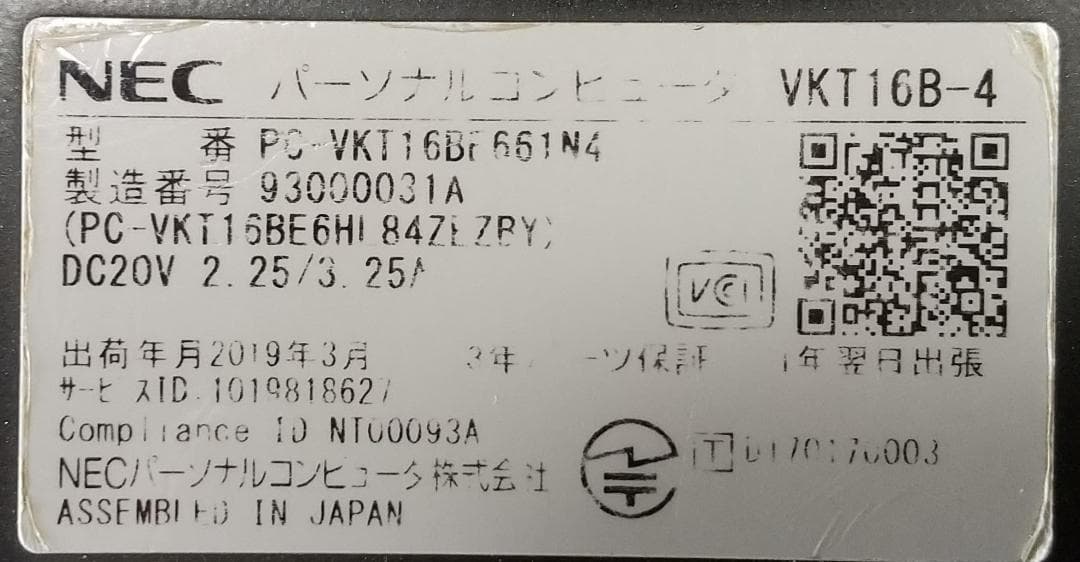 NEC パーソナルコンピュータ VKT16B-4
型 番 PC-VKT16BE661N4
製造番号 93000031A
DC20V 2.25/3.25A
VCCI
出荷年月2019年3月 3年パーツ保証 1年翌日出張
サービスID 1019818627
Compliance ID NT00093A
NECパーソナルコンピュータ株式会社
ASSEMBLED IN JAPAN
T